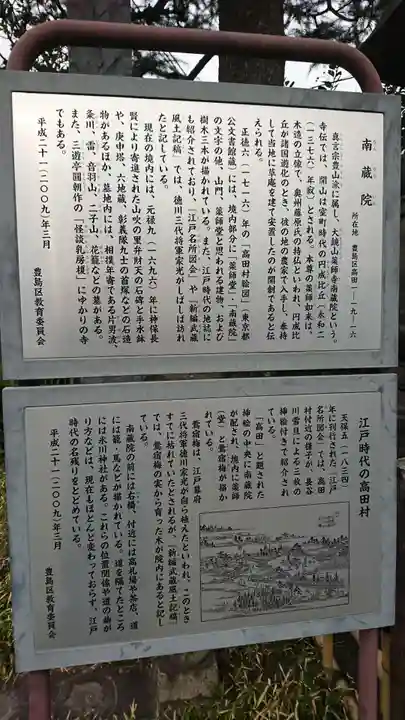 南蔵院
所在地　豊島区高田一ー九ー一六
真言宗豊山派に属し、大鏡山薬師寺南蔵院という。
寺伝では、開山は室町時代の円成比丘（永和二
（一三七六）年寂）とされる。本尊の薬師如来は、
木造の立像で、奥州藤原氏の持仏といわれ、円成比
丘が諸国遊化のとき、彼の地の農家で入手し、奉持
して当地に草庵を建て安置したのが開創であると伝
えられる。
正徳六（一七一六）年の「高田村絵図」（東京都
公文書館蔵）には、境内部分に「薬師堂」・「南蔵院」
の文字の他、山門、薬師堂と思われる建物、および
樹木三本が描かれている。また、江戸時代の地誌に
も紹介されており、「江戸名所図会」や「新編武蔵
風土記稿」では、徳川三代将軍家光がしばしば訪れ
たと記している。
現在の境内には、元禄九（一六九六）年に神保長
賢により寄進された山吹の里弁財天の石碑と手水鉢
や、庚申塔、六地蔵、彰義隊九士の首塚などの石造
物があるほか、墓地内には、相撲年寄である片男波
粂川、雷、音羽山、二子山、花籠などの墓がある。
また、三遊亭圓朝作の「怪談乳房榎」にゆかりの寺
でもある。
平成二十一（二〇〇九）年三月
豊島区教育委員会
江戸時代の高田村
天保五（一八三四）
年に刊行された「江戸
名所図会」には、高田
村付近の様子が長谷
川雪旦による三枚の
挿絵付きで紹介され
ている。
「高田」と題された
挿絵の中央に南蔵院
が配され、境内に薬師
（堂）と鶯宿梅が描か
れている。
鶯宿梅は、江戸幕府
三代将軍徳川家光が自ら植えたといわれ、このとき
すでに枯れていたとされるが、「新編武蔵風土記稿」
では、鶯宿梅の実から育った木が院内にあると記し
ている。
南蔵院の前には右橋、付近には高札場や茶店、道
には籠、馬などが描かれている。道を隔てたところ
には氷川神社がある。これらの位置関係や道の曲が
り方などは、現在もほとんど変わっておらず、江戸
時代の名残りをとどめている。
平成二十一（二〇〇九）年三月
豊島区教育委員会